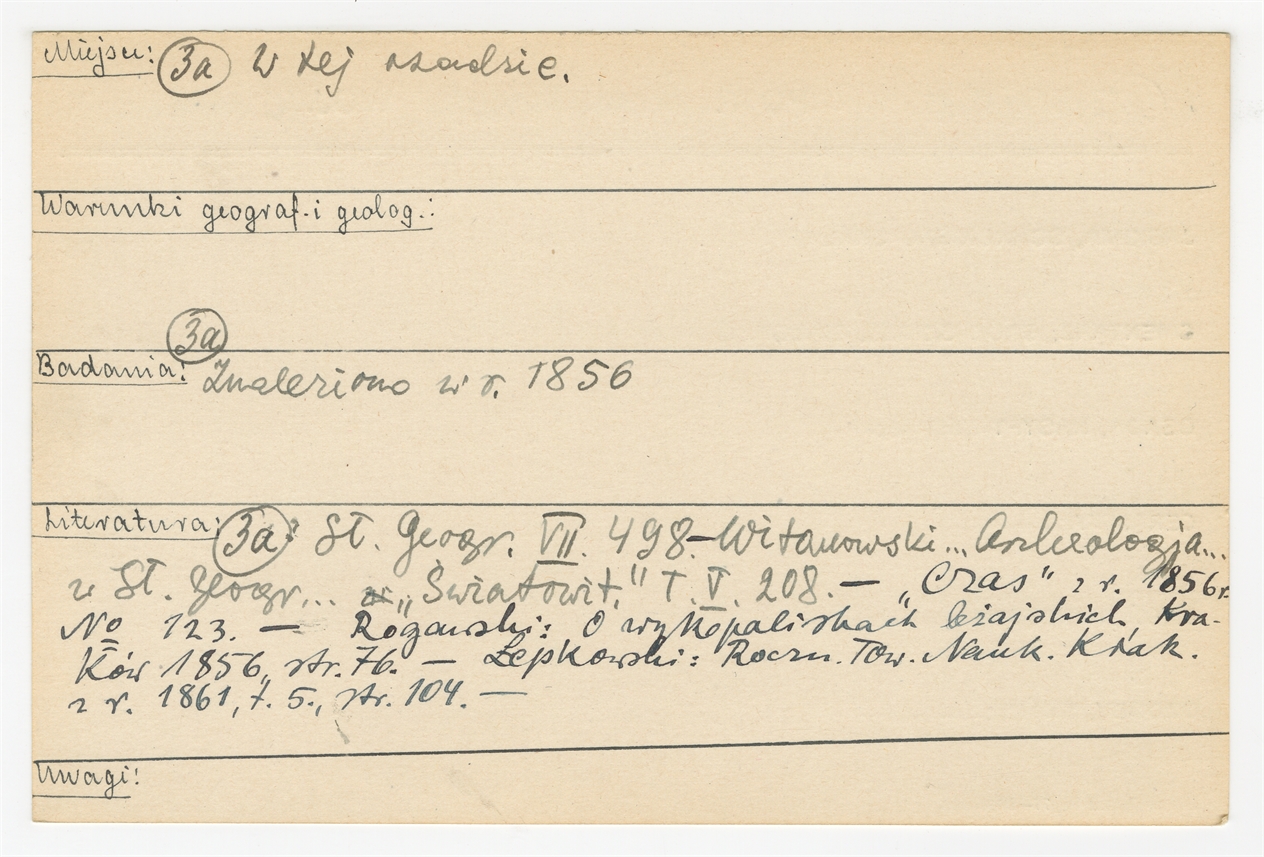 Miejsce: (3a) W tej osadzie.
Warunki geograf. i geolog.:
(3a)
Badania: Znaleziono w r. 1856
Literatura: (3a): Sł. Geogr. VII. 498.— Witanowski... Archeologja...
w Sł. Geogr... „Światowit." T. V. 208. — „Czas" z r. 1856r.
No 123. — Rogawski: O wykopaliskach leżajskich, Kra-
ków 1856, str. 76. — Łepkowski: Roczn. Tow. Nauk. Krak.
z r. 1861, t. 5., str. 104. —
Uwagi: